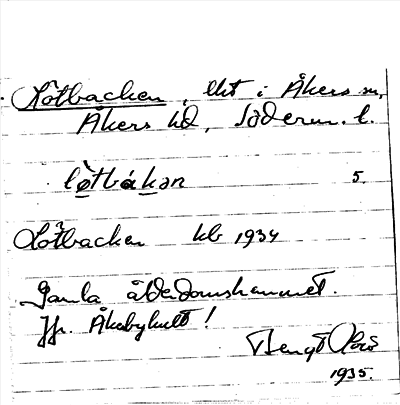 Lötbacken, lht i Åkers sn,
Åkers hd, Söderm. l.
lø̀tbákan 5.
Lötbacken kb 1934
Gamla ålderdomshemmet.
Jfr. Åkebyhult!
Bengt
1935.